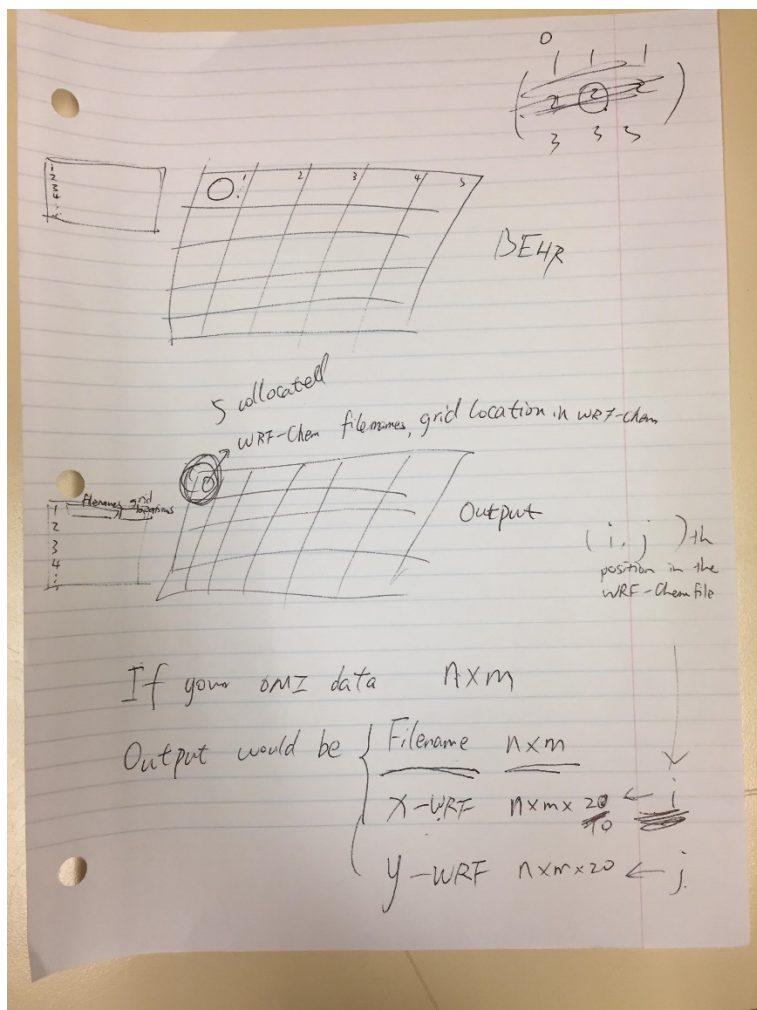 0
1 1 1
2 2 2
3 3 3
1 2 3 4 5
BEHR
5 collocated
WRF-Chem filenames, grid location in WRF-Chem
filenames grid
locations
1
2
3
4
Output
(i, j)th
position in the
WRF-Chem file
If your OMI data n×m
Output would be { Filename n×m
X-WRF n×m×20 ← i
10
y-WRF n×m×20 ← j